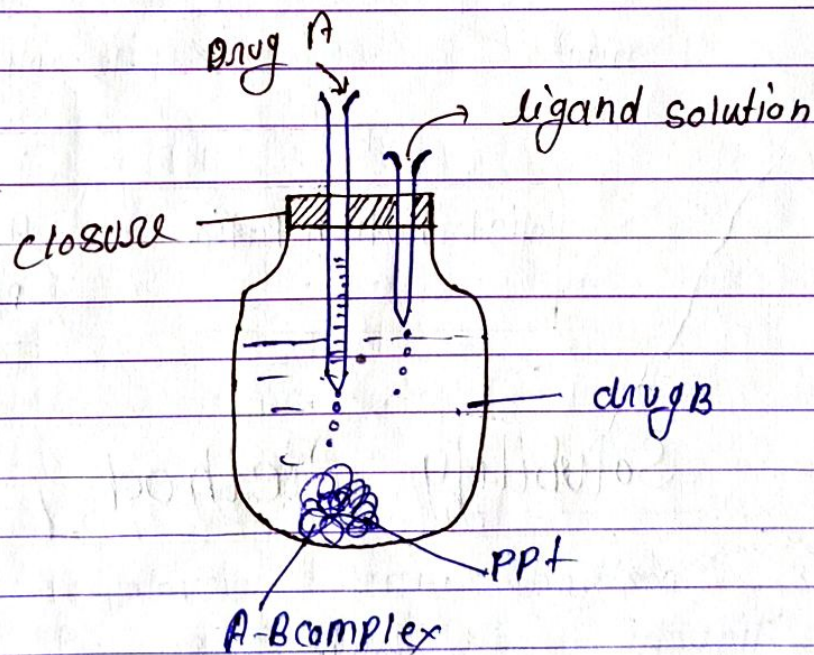 Drug A
ligand solution
closure
drugB
ppt
A-Bcomplex